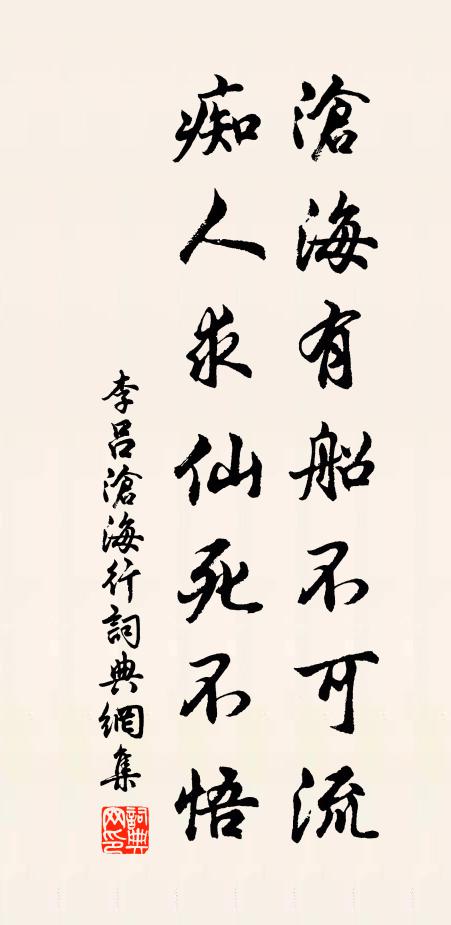 滄海有船不可流
痴人求仙死不悟
李吕滄海行詞典網集
詞典網印